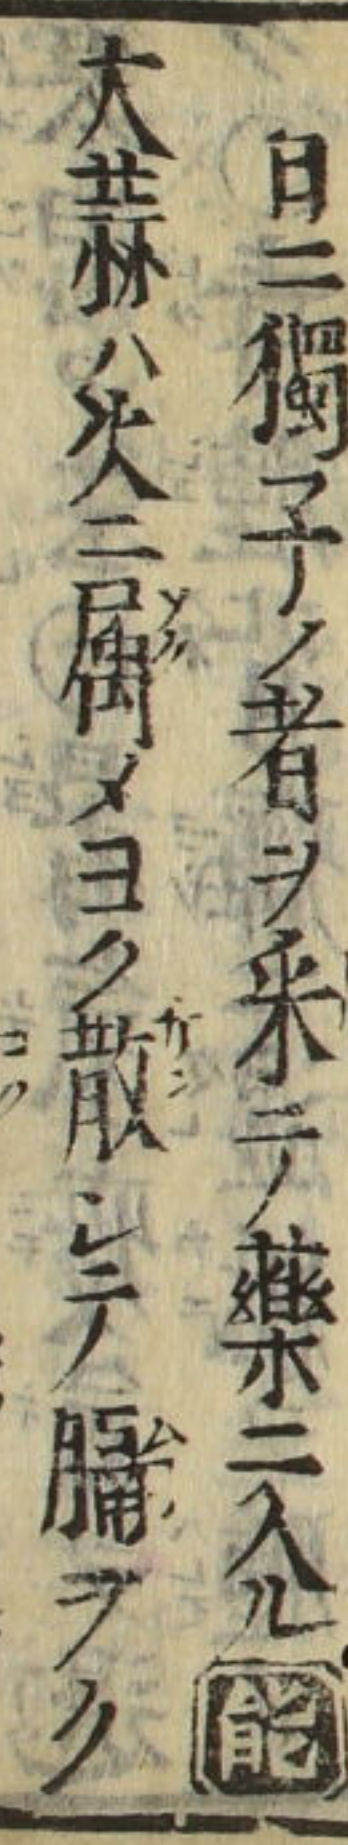 日ニ獨子ノ者ヲ采テ藥ニ入ル能
大蒜ハ火ニ属メヨク散シテ膈ヲク